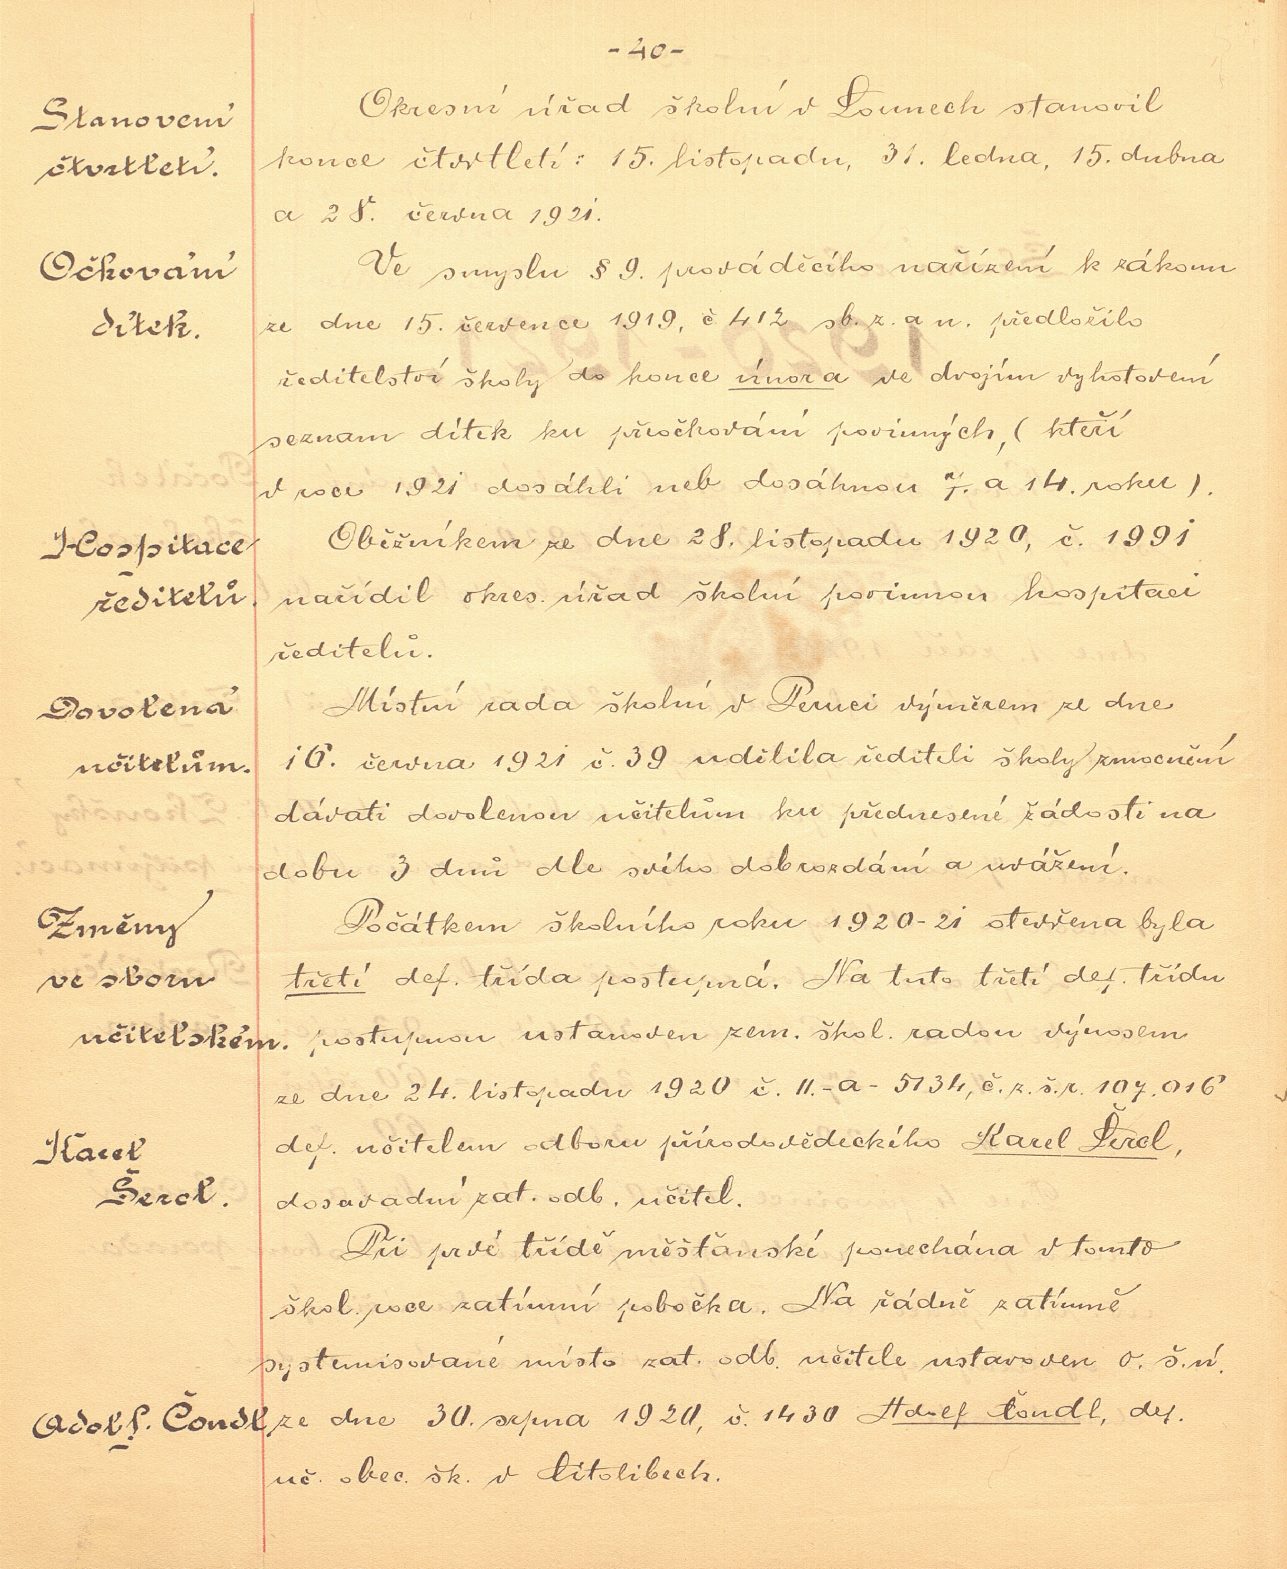 - 40 -
Stanovení
čtvrtletí.
Okresní úřad školní v Lounech stanovil
konce čtvrtletí: 15. listopadu, 31. ledna, 15. dubna
a 28. června 1921.
Očkování
dítek.
Ve smyslu § 9. prováděcího nařízení k zákonu
ze dne 15. července 1919, č 412 sb. z. a n. předložilo
ředitelství školy do konce února ve dvojím vyhotovení
seznam dítek ku přeočkování povinných, (kteří
v roce 1921 dosáhli neb dosáhnou 7. a 14. roku).
Hospitace
ředitelů.
Oběžníkem ze dne 28. listopadu 1920, č. 1991
nařídil okres. úřad školní povinnou hospitaci
ředitelů.
Dovolená
učitelům.
Místní rada školní v Peruci výměrem ze dne
16. června 1921 č. 39 udělila řediteli školy zmocnění
dávati dovolenou učitelům ku přednesené žádosti na
dobu 3 dnů dle svého dobrozdání a uvážení.
Změny
ve sboru
učitelském.
Počátkem školního roku 1920-21 otevřena byla
třetí def. třída postupná. Na tuto třetí def. třídu
postupnou ustanoven zem. škol. radou výnosem
ze dne 24. listopadu 1920 č. II.-a- 5134, č. z. š. r. 107.016
Karel
Šercl.
def. učitelem odboru přírodovědeckého Karel Šercl,
dosavadní zat. odb. učitel.
Při prvé třídě měšťanské ponechána v tomto
škol. roce zatímní pobočka. Na řádně zatímně
systemisované místo zat. odb. učitele ustanoven o. š. ú.
Adolf. Čondl
ze dne 30. srpna 1920, č. 1430 Adolf Čondl, def.
uč. obec. šk. v Citolibech.